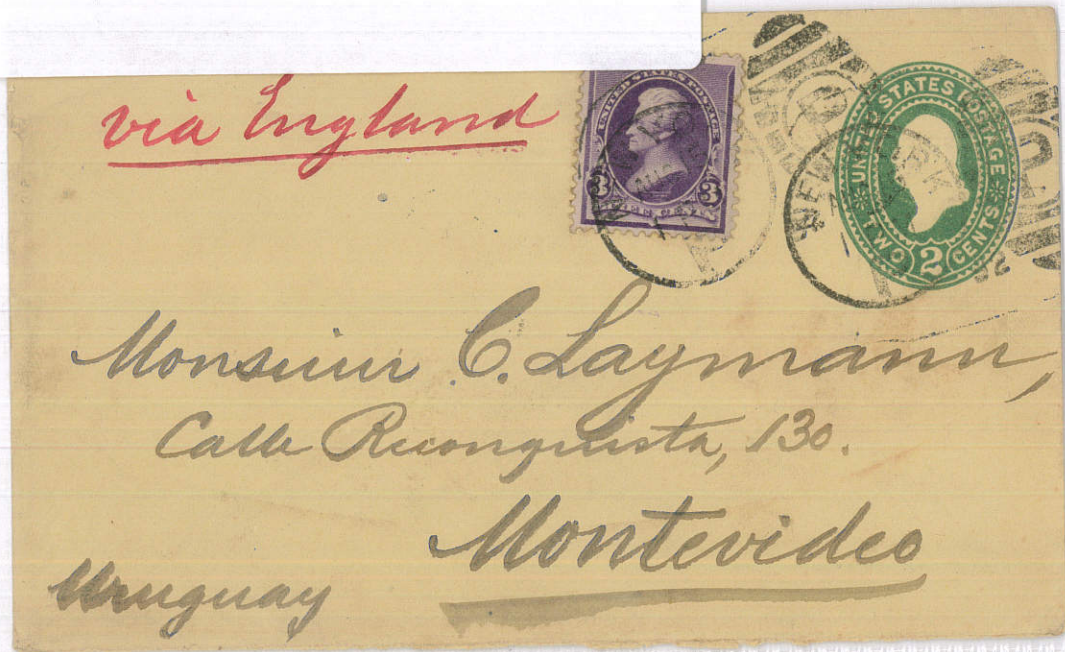 via England
UNITED STATES POSTAGE
3 3
UNITED STATES POSTAGE
TWO 2 CENTS
NEW YORK
Monsieur C. Laymann,
Calle Reconquista, 130.
Montevideo
Uruguay